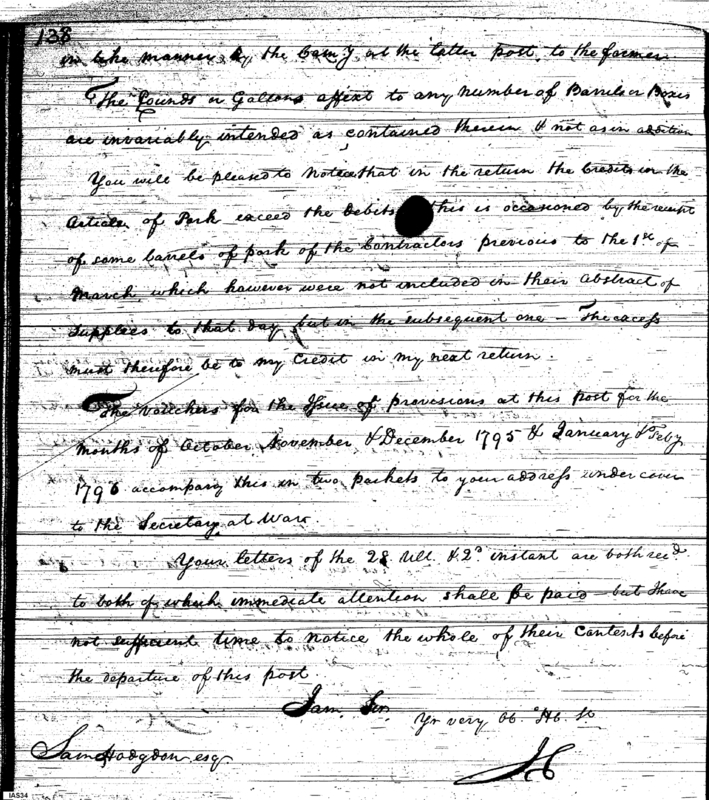 138
in like manner by the Com'y at the latter post, to the former.
The Pounds or Gallons affixt to any number of Barrels or Boxes
are invariably intended as contained therein & not as in addition
You will be pleased to notice that in the return the Credits in the
Article of Pork exceed the Debits this is occasioned by the receipt
of some barrels of pork of the Contractors previous to the 1st of
March, which however were not included in their abstract of
Supplies to that day but in the subsequent one – The excess
must therefore be to my Credit in my next return.
The Vouchers for the Issue of provisions at this post for the
months of October November & December 1795 & January & Feby
1796 accompany this in two packets to your address under cover
to the Secretary at War
Your letters of the 28 Ult. & 2d instant are both recd
to both of which immediate attention shall be paid – but I have
not sufficient time to notice the whole of their Contents before
the departure of this post
I am Sir
Yr very Ob. Hb. St
Saml Hodgdon esqr
IAS34